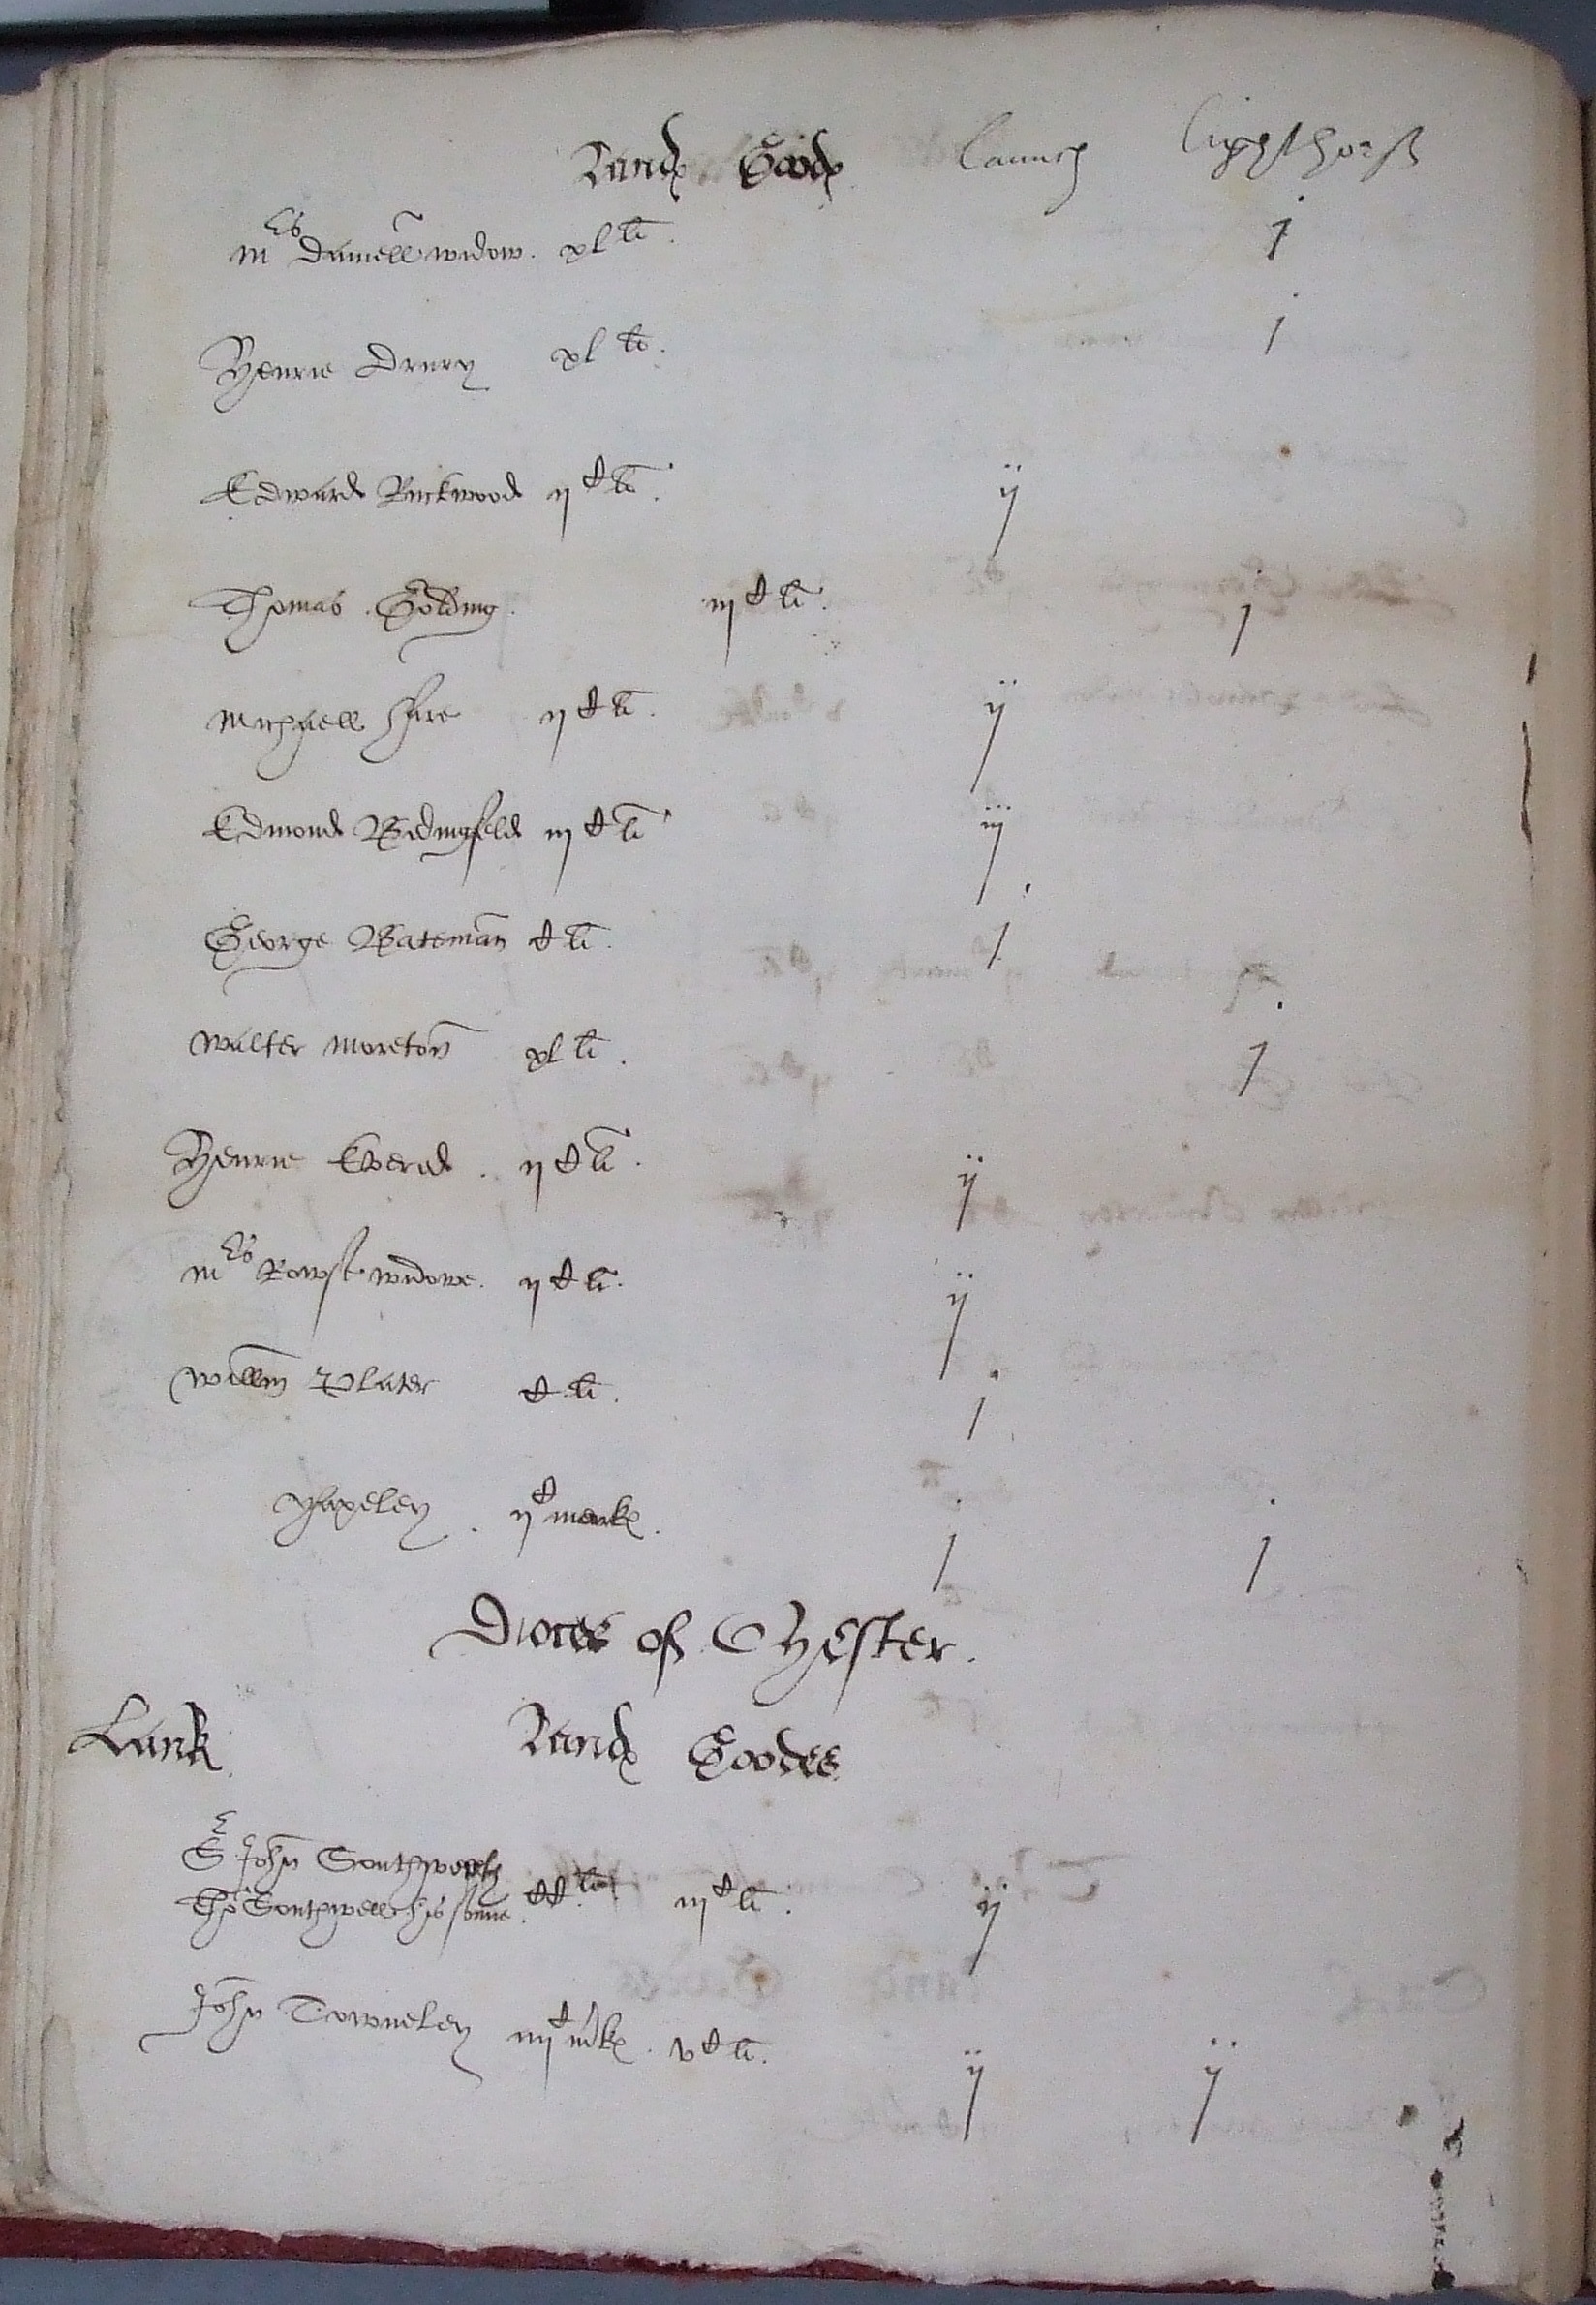 Landes Goodes Launc Lighthorss
Mres Daniell widow. xl li. j
Henrie Drury xl li. j
Edward Ruckwood ij C li. ij
Thomas Golding. iij C li. j
Michaell Hare ij C li. ij
Edmond Bedingfeld iij C li iij
George Bateman C li. j
Walter Moreton xl li. j
Henrie Everard. ij C li. ij
Mres Rowse widowe. ij C li. ij
Willm Plater C li. j
Yaxeley. ij C markes. j j
Dioces of Chester.
Lank. Landes Goodes
Sr John Southworth
Tho Southwell his sonne. CC li. iij C li. ij
John Towneley iiij C mkes. v C li. ij ij